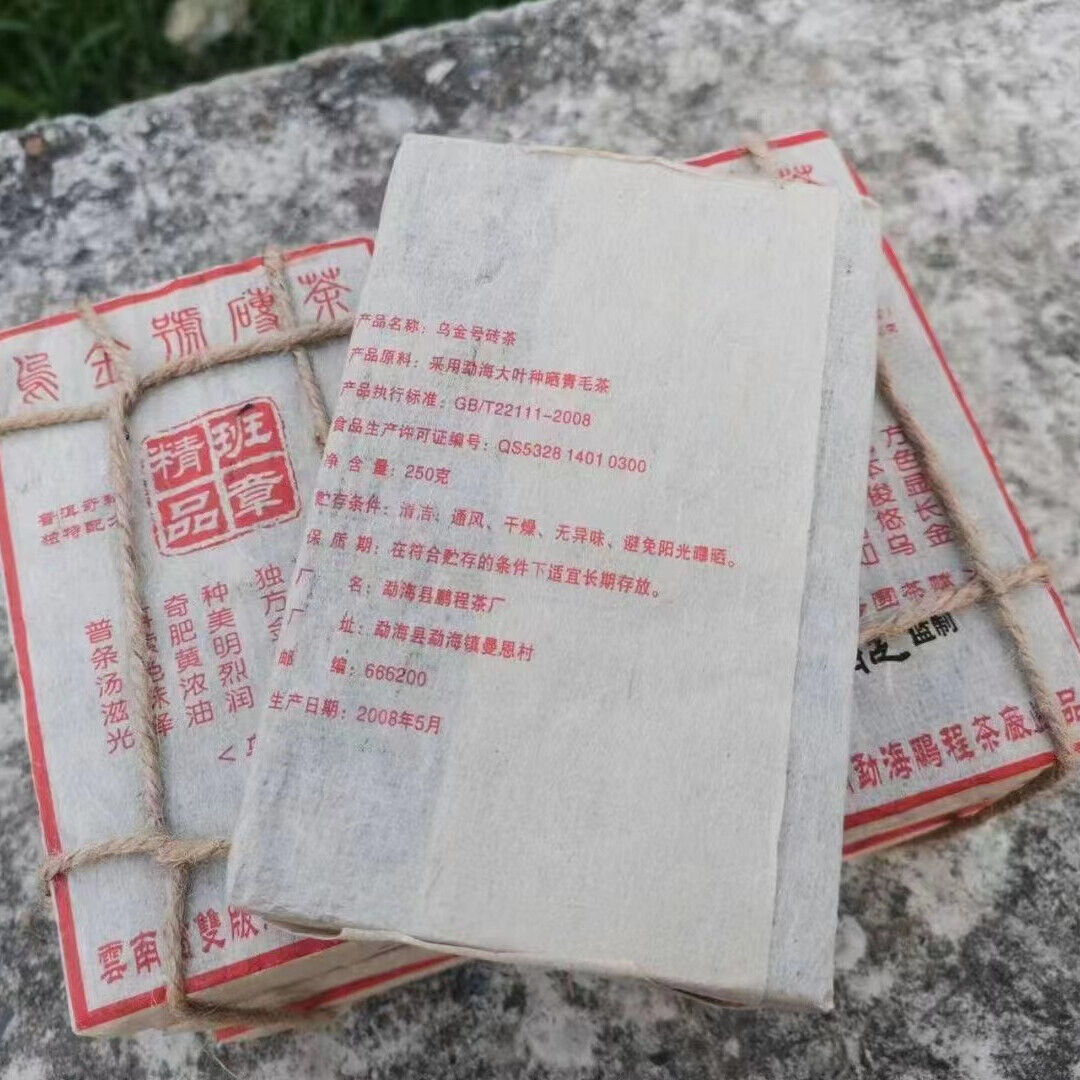 烏金號磚茶
班章
精品
独
方
金
种美明烈润
奇肥黄浓油
普条汤滋光
雲南
雙版
产品名称：乌金号砖茶
产品原料：采用勐海大叶种晒青毛茶
产品执行标准：GB/T22111-2008
食品生产许可证编号：QS5328 1401 0300
净 含 量：250克
贮存条件：清洁、通风、干燥、无异味、避免阳光曝晒。
保 质 期：在符合贮存的条件下适宜长期存放。
厂 名：勐海县鹏程茶厂
厂 址：勐海县勐海镇曼恩村
邮 编：666200
生产日期：2008年5月
茶
方色显长金
俊悠乌
團茶
监制
勐海鵬程茶廠
品